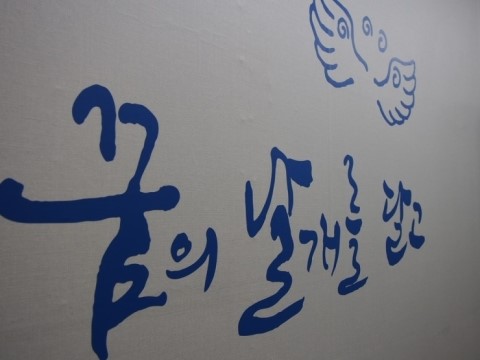 꿈의 날개를 달고